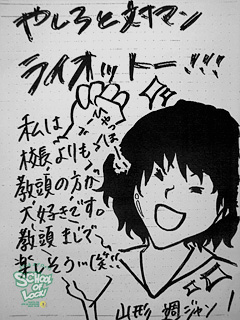 やしろと対マン
ライオットー!!!
やっほー
私は
校長よりも
教頭の方が
大好きです。
教頭まじで
楽しそう(笑)!!
SCHOOL OF LOCK!
山形 調ジャン!